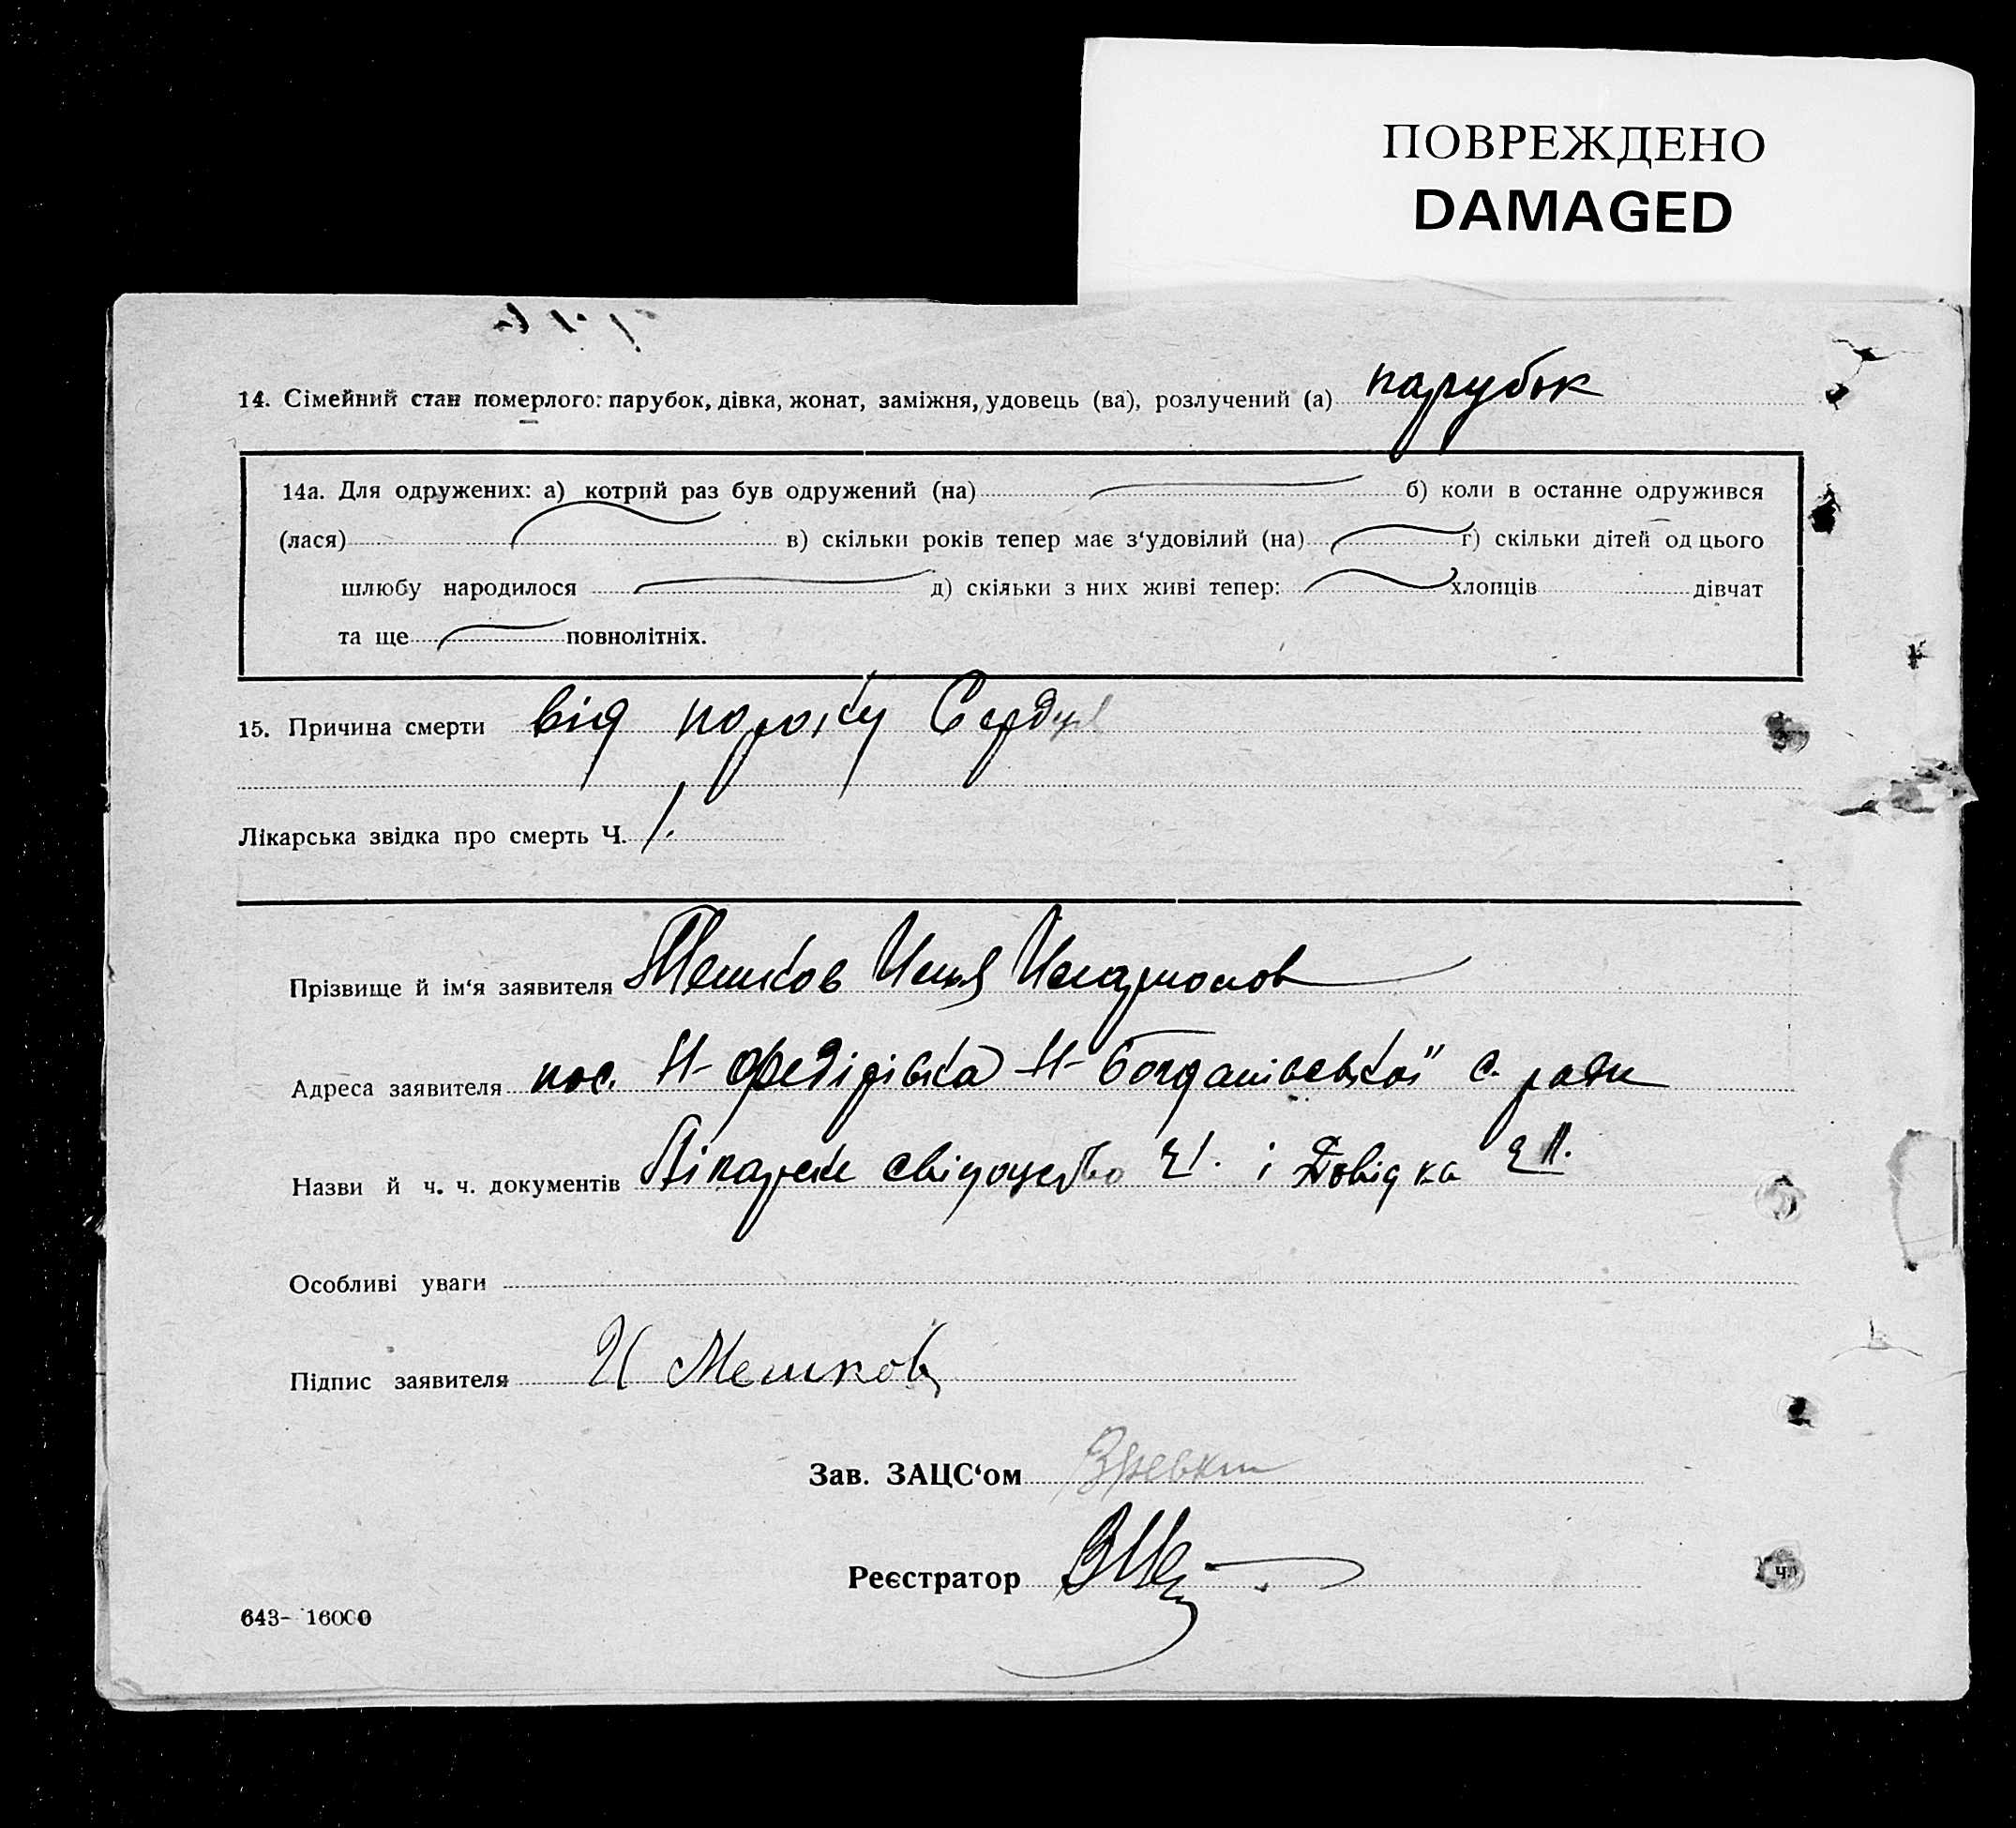 ПОВРЕЖДЕНО
DAMAGED
14. Сімейний стан померлого: парубок, дівка, жонат, заміжня, удовець (ва), розлучений (а) парубок
14а. Для одружених: а) котрий раз був одружений (на) б) коли в останнє одружився
(лася) в) скільки років тепер має з‘удовілий (на) г) скільки дітей од цього
шлюбу народилося д) скільки з них живі тепер: хлопців дівчат
та ще повнолітніх.
15. Причина смерти від пороку Сердця
Лікарська звідка про смерть Ч. 1.
Прізвище й ім‘я заявителя Мешков Илья
Адреса заявителя пос. Н-Федірівка Н-Богданівської с. ради
Назви й ч. ч. документів свідоцтво Ч 1. і Довідка Ч
Особливі уваги
Підпис заявителя И Мешков
Зав. ЗАЦС‘ом
Реєстратор
643- 16000